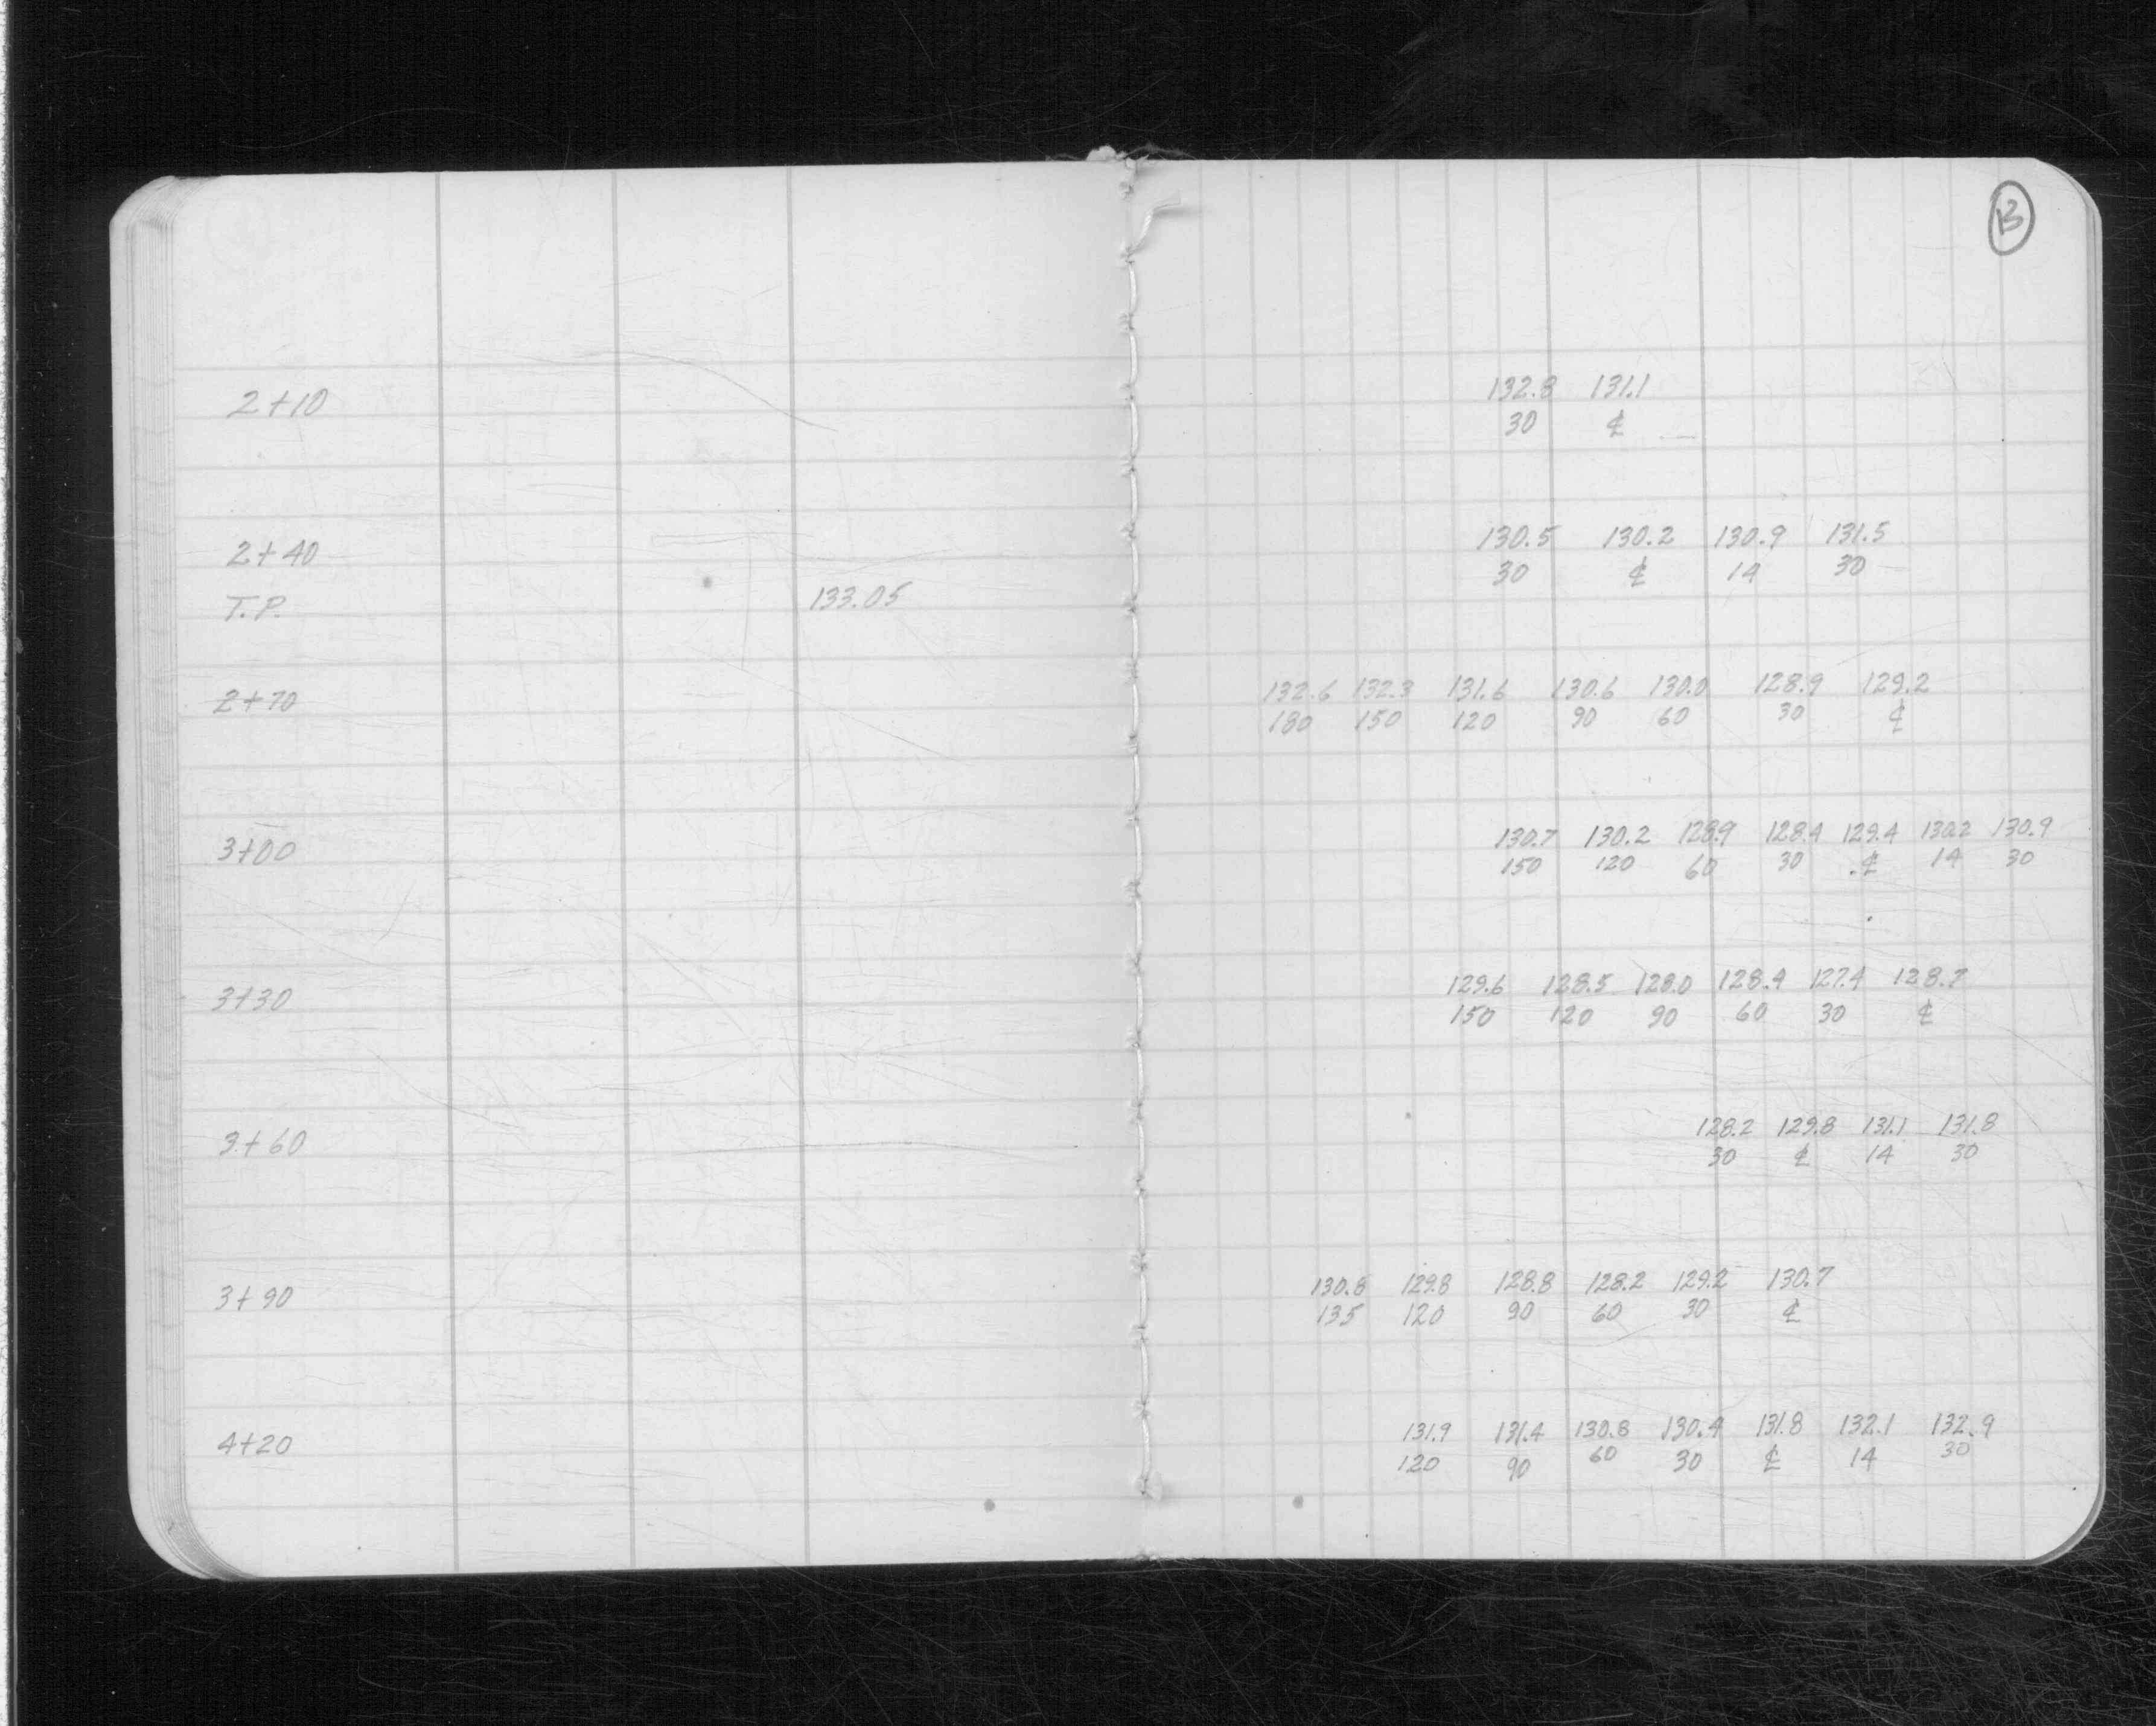 13
2+10 132.8 131.1
30 ℄
2+40 130.5 130.2 130.9 131.5
30 ℄ 14 30
T.P. 133.05
2+70 132.6 132.3 131.6 130.6 130.0 128.9 129.2
180 150 120 90 60 30 ℄
3+00 130.7 130.2 128.9 128.4 129.4 130.2 130.9
150 120 60 30 ℄ 14 30
3+30 129.6 128.5 128.0 128.4 127.4 128.7
150 120 90 60 30 ℄
3+60 128.2 129.8 131.1 131.8
30 ℄ 14 30
3+90 130.8 129.8 128.8 128.2 129.2 130.7
135 120 90 60 30 ℄
4+20 131.9 131.4 130.8 130.4 131.8 132.1 132.9
120 90 60 30 ℄ 14 30